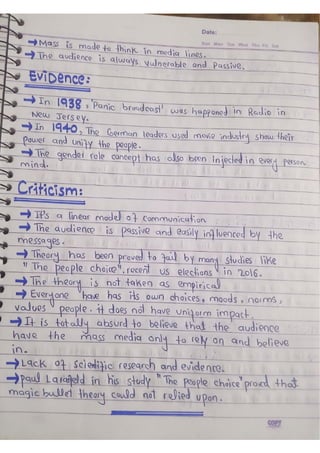 Date:
Sun Mon Tue Wed Thu Fri Sat
→ Mass is made to think in media lines.
→ The audience is always vulnerable and Passive.
Evidence:
→ In 1938, 'Panic broadcast' was happened in Radio in
New Jersey.
→ In 1940, The German leaders used movie industry show their
Power and unify the people.
→ The gender role concept has also been injected in every person
mind.
Criticism:
→ It's a linear model of communication
→ The audience is passive and easily influenced by the
messages.
→ Theory has been proved to fail by many studies like
"The people choice", recent us elections in 2016.
→ The theory is not taken as empirical
→ Everyone have has its own choices, moods, norms,
values people. it does not have uniform impact.
→ It is totally absurd to believe that the audience
have the mass media only to rely on and believe
in.
→ Lack of scientific research and evidence.
→ Paul Larafeld in his study "The people choice" proved that
magic bullet theory could not relied upon.
COPY